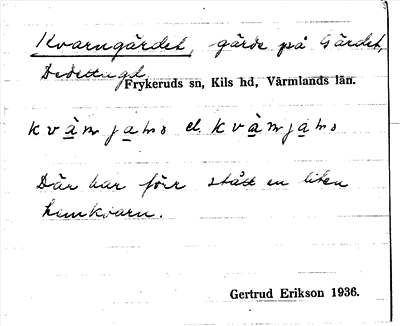 Kvarngärdet, gärde på Gärdet,
Frykeruds sn, Kils hd, Värmlands län.
kvàmjaħs el. kvàmjaħs
Där har förr stått en liten
hemkvarn.
Gertrud Erikson 1936.